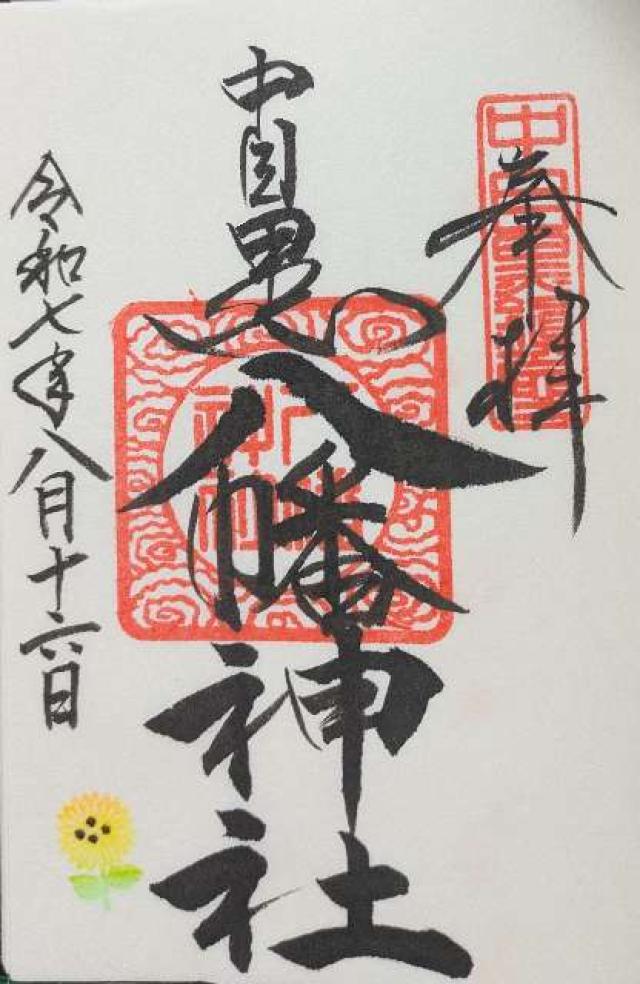 奉拝
中目黒
八幡神社
令和七年八月十六日